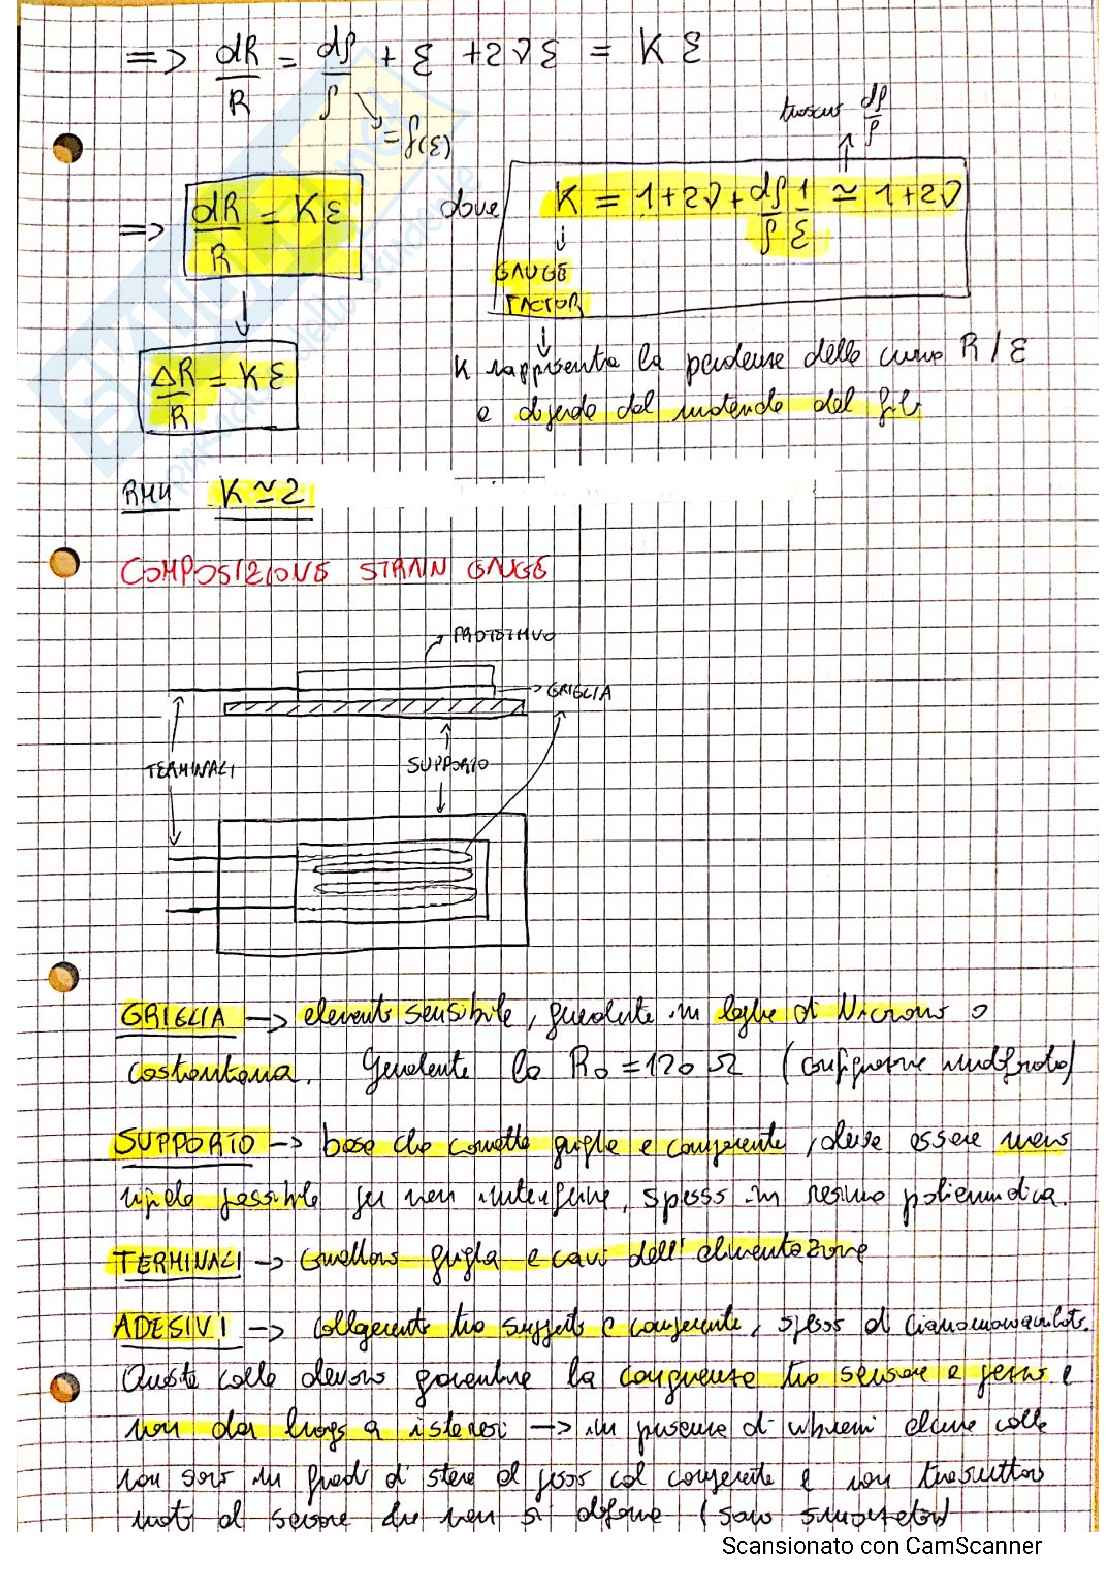 => dR/R = dρ/ρ + ε + 2νε = K ε
= f(ε)
trascuro dρ/ρ
=> dR/R = Kε dove K = 1+2ν+ dρ/ρ 1/ε ≃ 1+2ν
GAUGE
FACTOR
ΔR/R = Kε
K rappresenta la pendenza della curva R/ε
e dipende dal materiale del filo
K≃2
COMPOSIZIONE STRAIN GAUGE
PROTETTIVO
GRIGLIA
TERMINALI
SUPPORTO
GRIGLIA -> elemento sensibile, generalmente in leghe di Nicromo o
costantana. Generalmente la R₀ = 120 Ω (configurazione
SUPPORTO -> base che connette griglia e componente, deve essere meno
rigido possibile per non interferire, spesso in resina poliimmidica.
TERMINALI -> connettono griglia e cavi dell'alimentazione
ADESIVI -> collegamento tra supporto e componente, spesso di
Queste colle devono garantire la congruenza tra sensore e pezzo e
non dar luogo a isteresi -> in presenza di alcune colle
non sono in grado di stare al passo col componente e non trasmettono
moto al sensore che non si deforma (sono
Scansionato con CamScanner